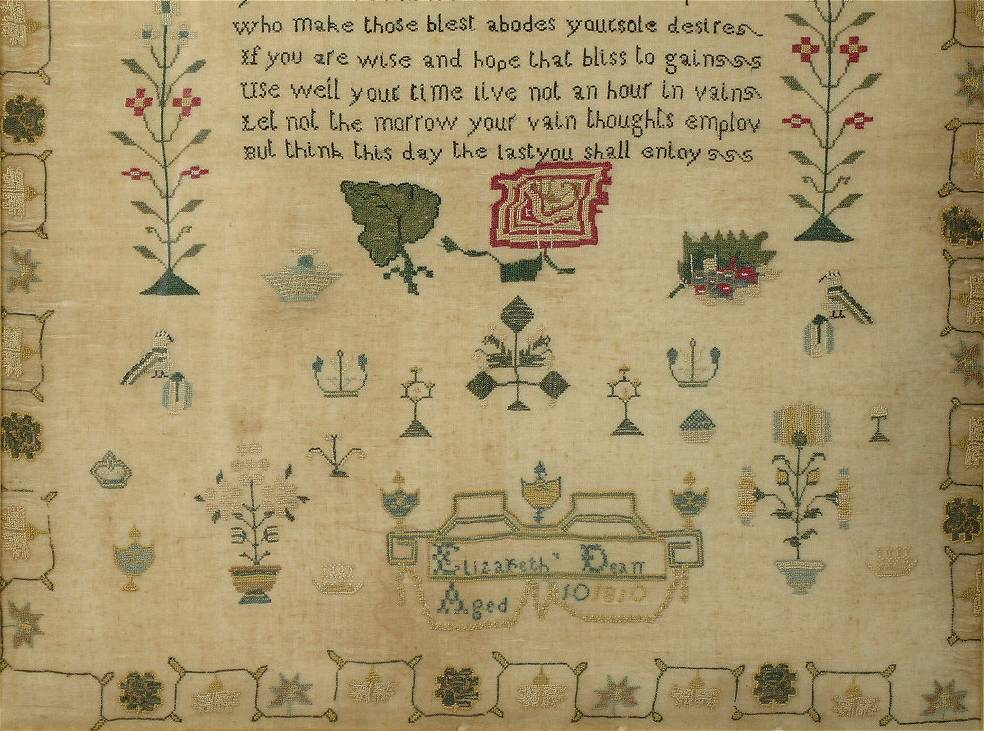 who make those blest abodes yoursole desires
If you are wise and hope that bliss to gain
Use well your time live not an hour in vain
Let not the morrow your vain thoughts employ
But think this day the last you shall enioy
Elizabeth Dean
Aged 10 1810